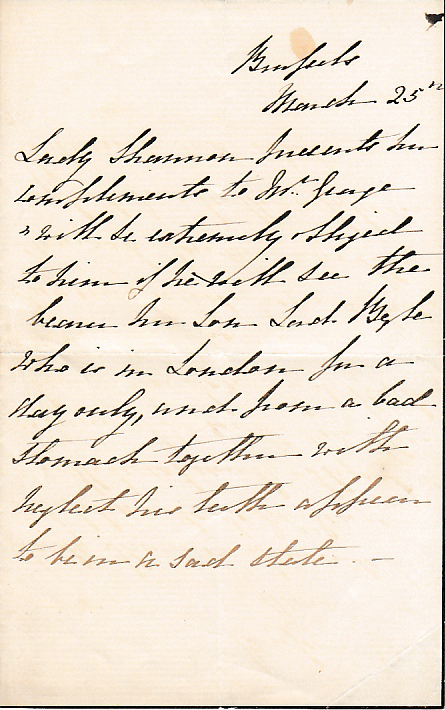 Brussels
March 25th
Lady Shannon presents her
compliments to Mr. George
& will be extremely obliged
to him if he will see the
bearer her Son Lord Boyle
who is in London for a
day only, and from a bad
stomach together with
neglect his teeth appear
to be in a sad state. —